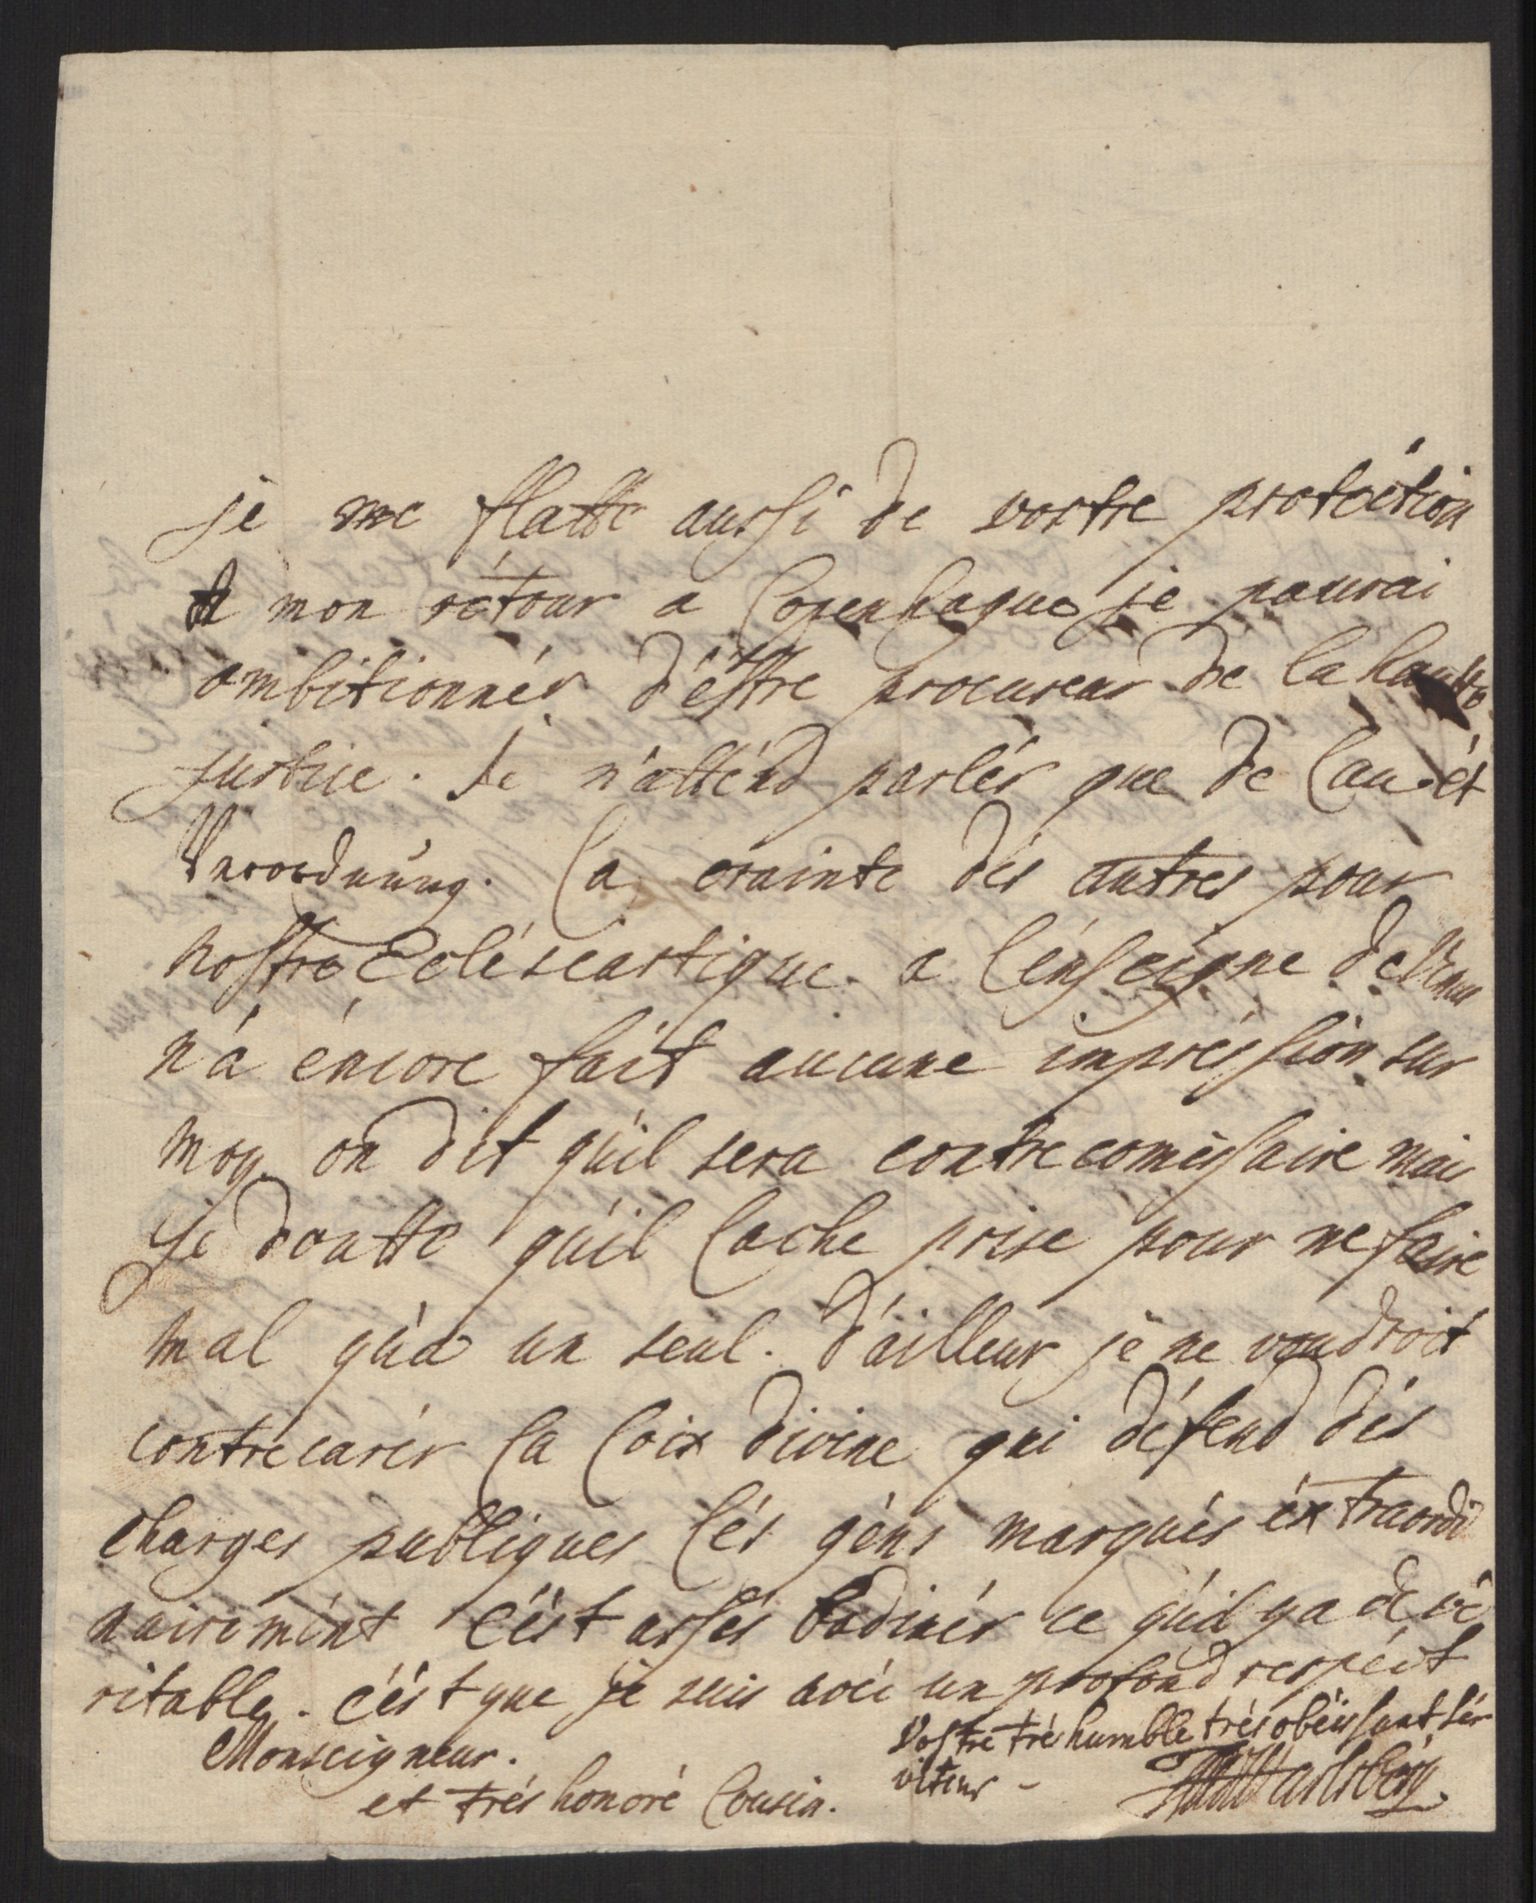 je me flatte aussi de vostre protéction
A mon rétour a Copenhague je pourai
ambitionnér d'éstre procureur de la hautte
justice. Je n'atténd parlér que de Lau ét
Verordnung. La crainte dés autres pour
nostre Ecléseastique a l'énseigne de Venus
n'á éncore fait aucune impréssion sur
moy on dit qu'il sera contrecomissaire mais
je doutte qu'il lache prise pour ne faire
mal qu'a un seul. d'ailleur je ne voudroit
contrecarér la loix divine qui défend dés
charges publiques lés géns marqués éxtraordi
nairemént c'ést assés badinér ce qu'il ya de vé
ritable. c'ést que je suis avéc un profond respéct
Monseigneur.
et trés honoré Cousin.
Vostre trés humble trés obéissant sér
viteur